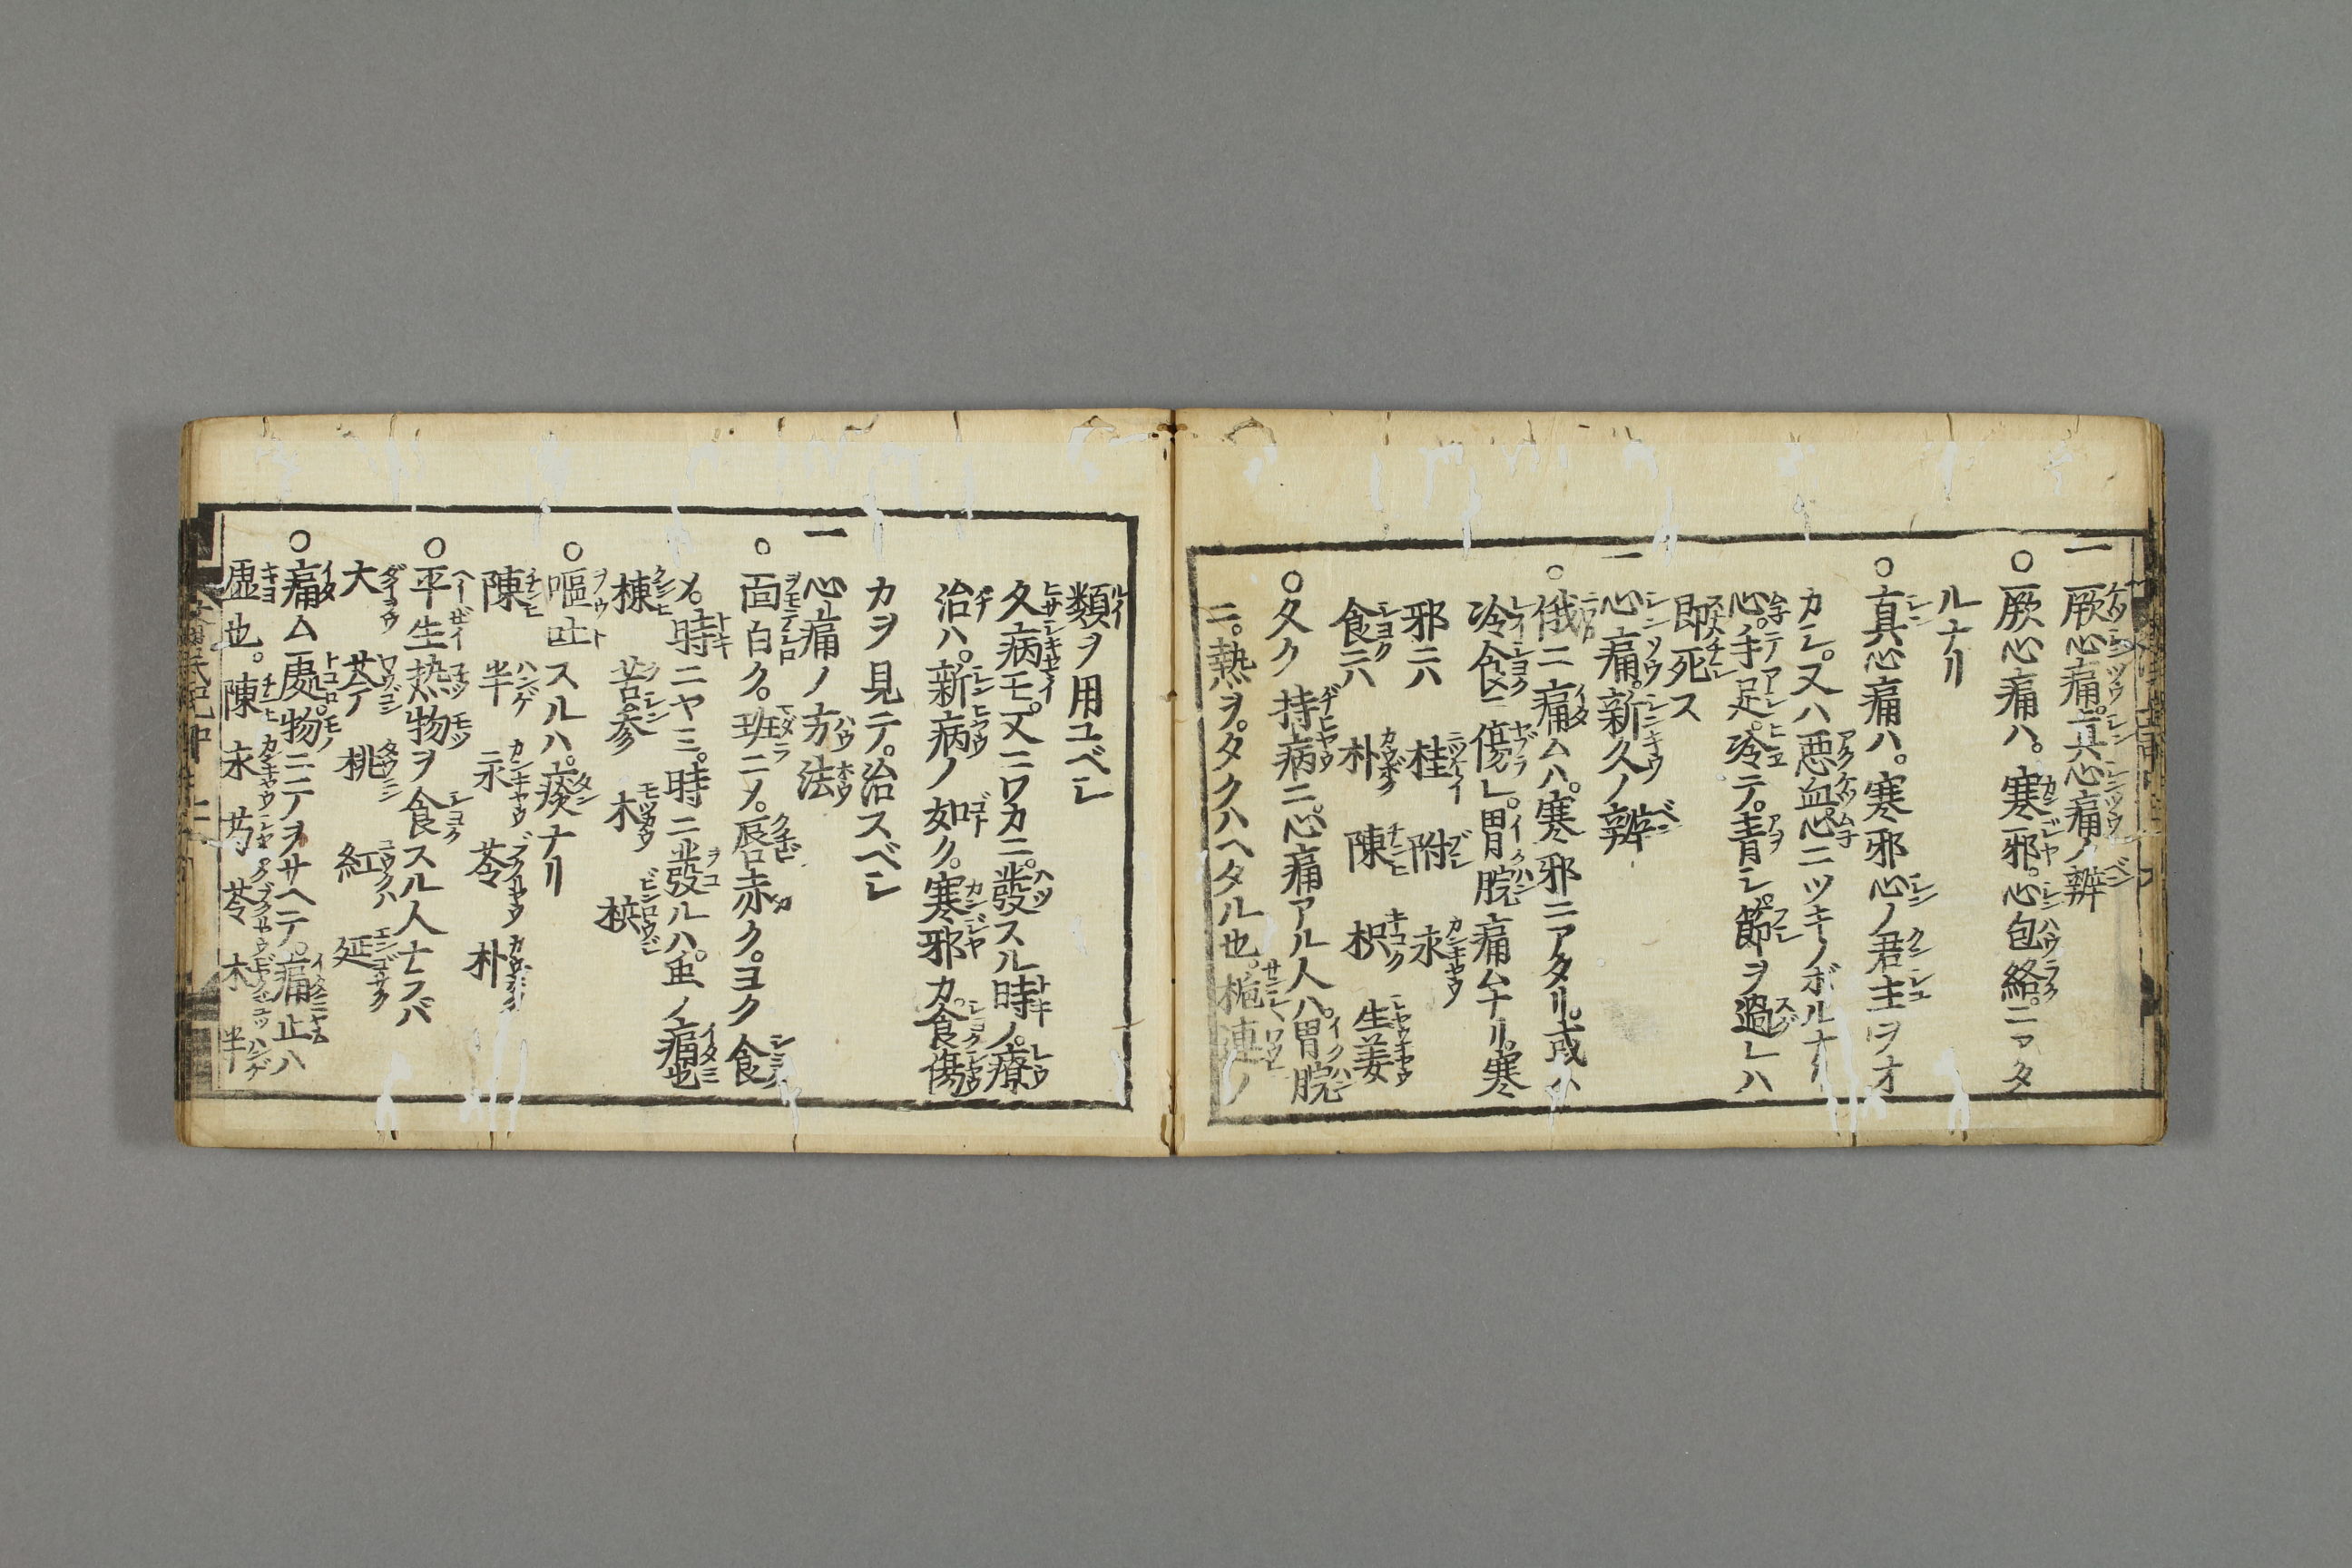 一厥心痛。真心痛ノ辨
○厥心痛ハ。寒邪。心包絡。ニアタ
ルナリ
○真心痛ハ。寒邪心ノ君主ヲオ
カシ。又ハ悪血心ニツキノボルナリ
心。手足。冷テ。青シ。節ヲ過レハ
即死ス
一心痛。新久ノ辨
○俄ニ痛ムハ。寒邪ニアタリ。或ハ
冷食ニ傷レ。胃脘痛ムナリ。寒
邪ニハ 桂 附 永
食ニハ 朴 陳 枳 生姜
○久ク持病ニ。心痛アル人ハ。胃脘
ニ。熱ヲ。タクハヘタル也。梔連ノ
類ヲ用ユベシ
久病モ。又ニワカニ。發スル時ノ。療
治ハ。新病ノ如ク。寒邪カ。食傷
カヲ見テ。治スベシ
一心痛ノ方法
○面白ク。班ニメ。唇赤ク。ヨク食
メ。時ニヤミ。時ニ發ルハ。虫ノ痛也
楝 苦参 木 梹
○嘔吐スルハ。痰ナリ
陳 半 永 苓 朴
○平生热物ヲ食スル人ナラバ
大 芩 桃 紅 延
○痛ム處。物ニテヲサヘテ。痛止ハ
虚也。陳 永 芍 苓 木 半